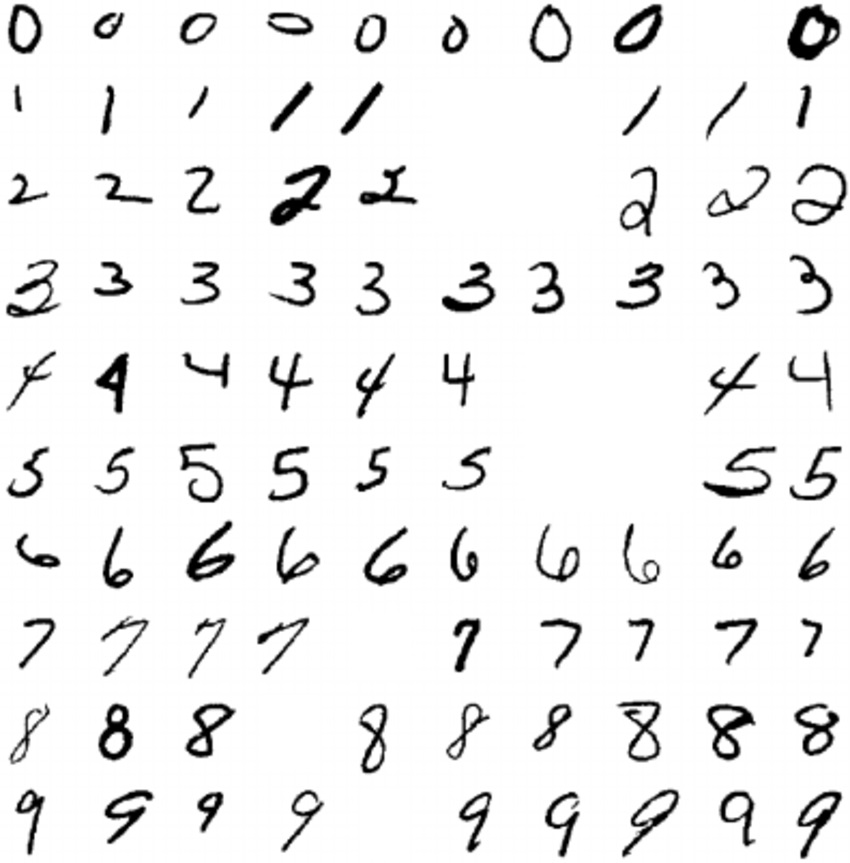 0 0 0 0 0 0 0 0 0
1 1 1 1 1 1 1 1
2 2 2 2 2 2 2 2
3 3 3 3 3 3 3 3 3 3
4 4 4 4 4 4 4 4
5 5 5 5 5 5 5 5
6 6 6 6 6 6 6 6 6 6
7 7 7 7 7 7 7 7 7
8 8 8 8 8 8 8 8 8
9 9 9 9 9 9 9 9 9